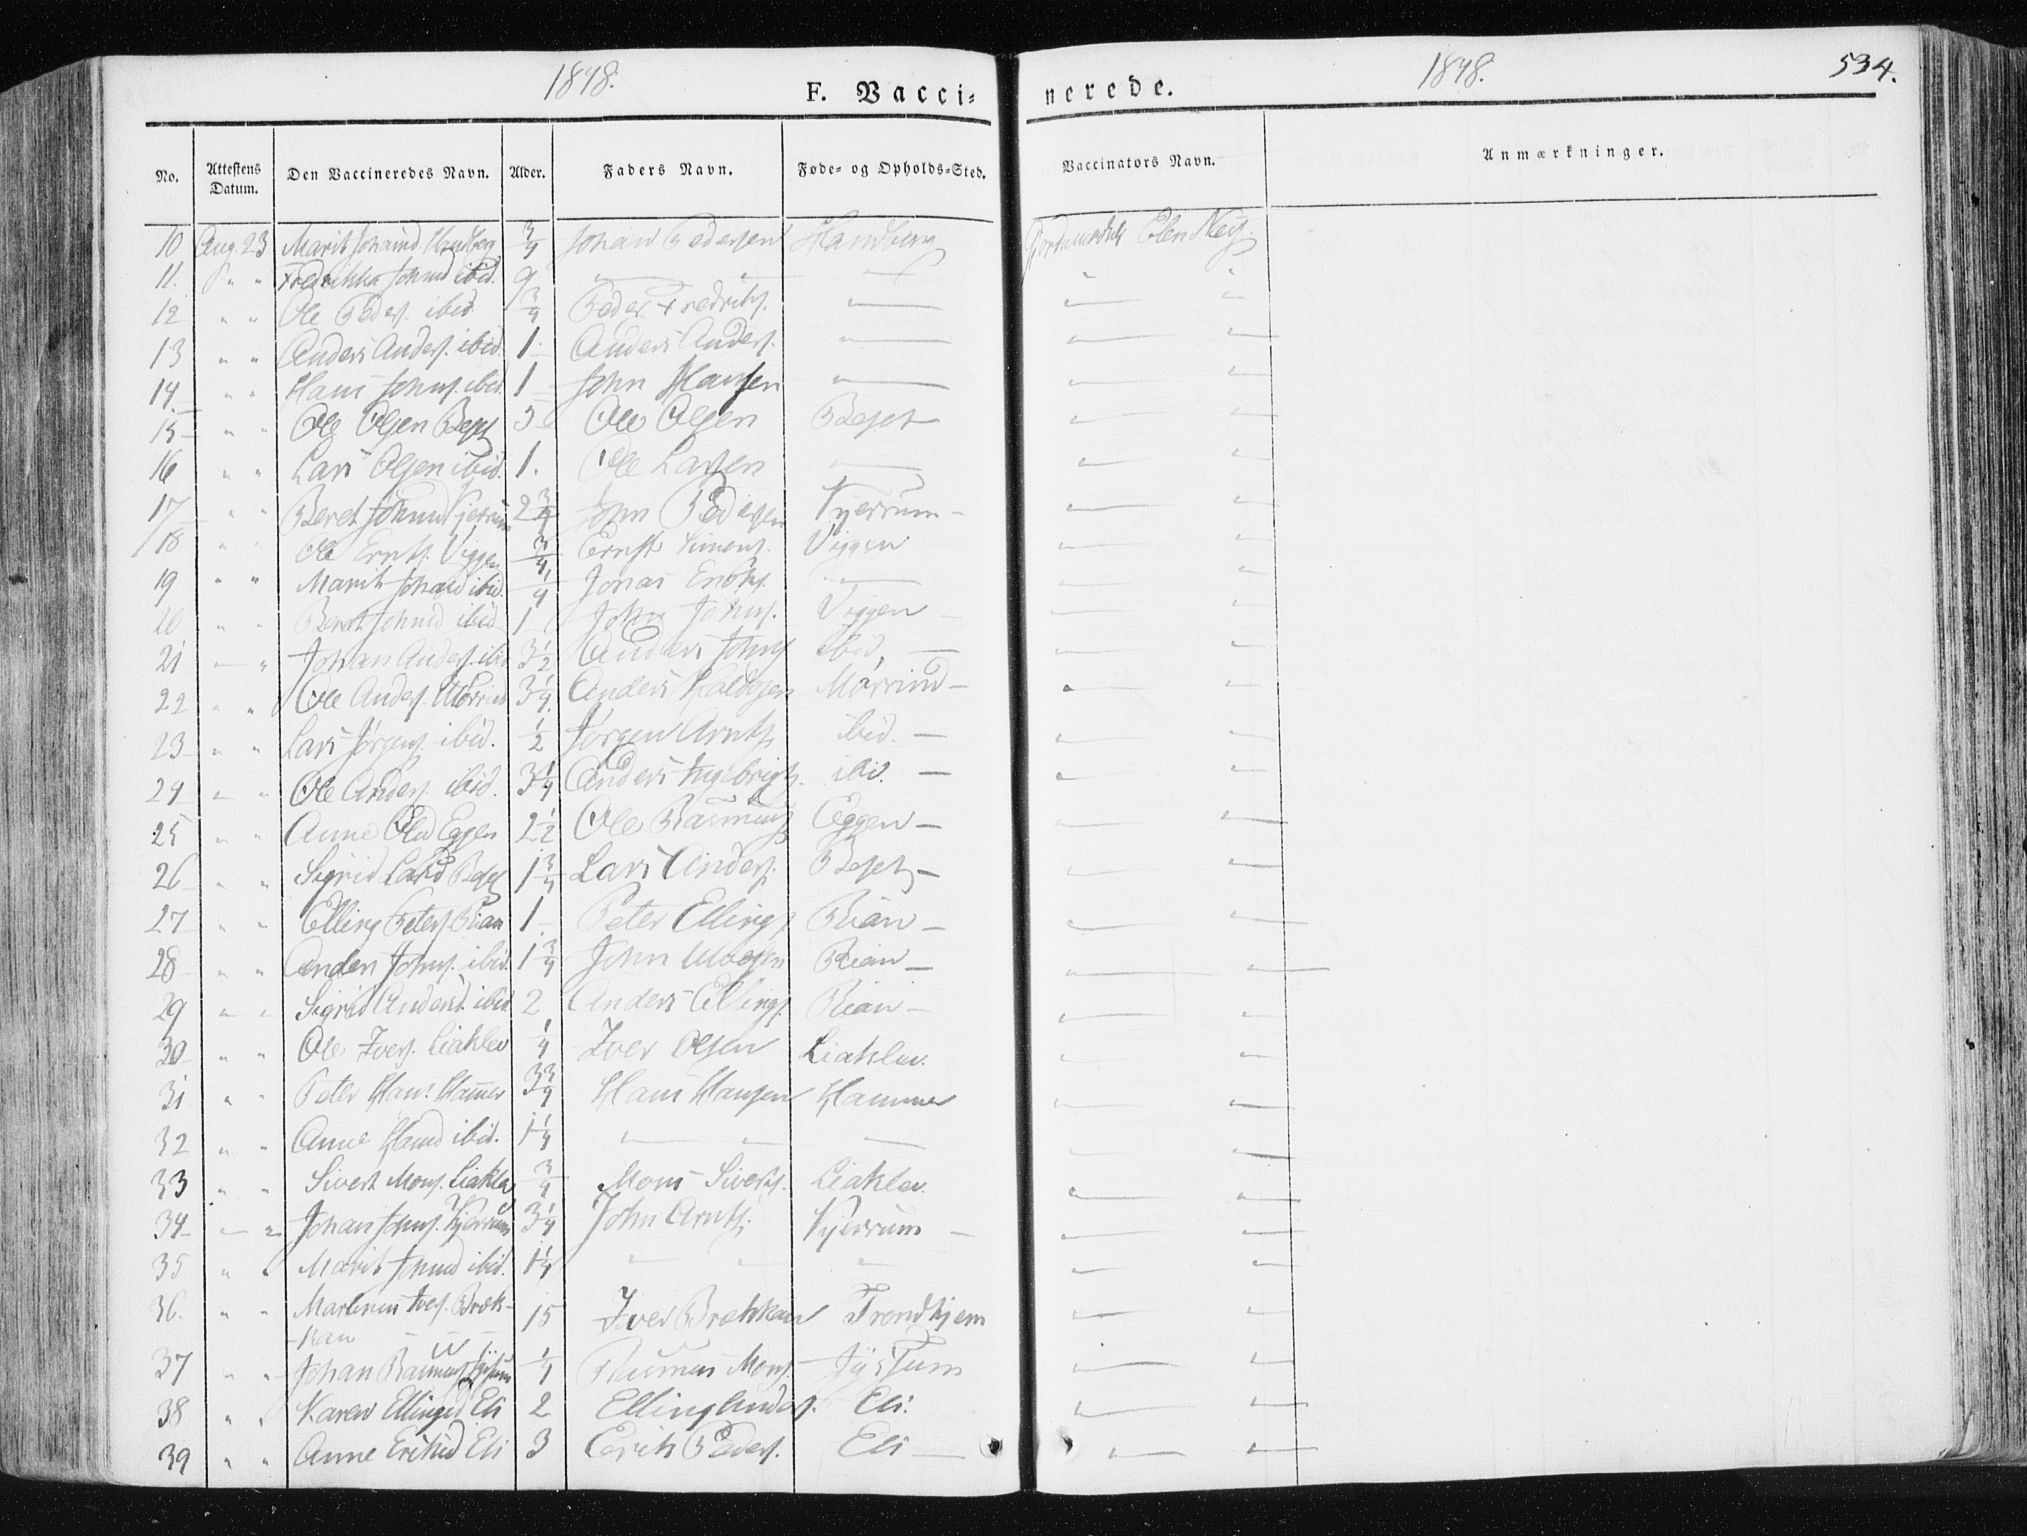 1848.
F. Vacci-
nerede.
1848.
534.
No. Attestens Datum. Den Vaccineredes Navn. Alder. Faders Navn. Føde- og Opholds-Sted. Vaccinators Navn. Anmærkninger.
10 Aug. 23 Marit Johansd Hamberg 3/4 Johan Pedersen Hamberg Jordemoder Elen
11. " " Fredrikka Johansd ibid. 9 — — — " "
12 " " Ole Peders. ibid. 3/4 Peder Fredriks. — " "
13 " " Anders Anders. ibid. 1. Anders Anders. — " "
14 " " Hans Johns. ibid. 1 John Hansen — " "
15 " " Ole Olsen 3 Ole Olsen " "
16 " " Lars Olsen ibid. 1. Ole Larsen — " "
17 " " Beret Johnsd Kjerrum 2 3/4 John Pedersen Kjerrum — " "
18 " " Ole Ernts. Viggen 3/4 Ernst Simons. Viggen " "
19 " " Marit Jonasd ibid. 1/4 Jonas Enoks. — " "
20 " " Beret Johnsd ibid 1 John Johns. Viggen — " "
21 — " Johan Anders. ibid 3 1/2 Anders Johns. ibid. — " "
22 " " Ole Anders. 3 1/4 Anders " "
23 " " Lars Jørgens. ibid. 1/2 Jørgen Arnts. ibid. — " "
24 " " Ole Anders. ibid. 3 1/4 Anders Ingebrigts. ibid. — " "
25 " " Anne Olsd Eggen 2 1/2 Ole Rasmus. Eggen — " "
26 " " Sigrid Larsd 1 3/4 Lars Anders. — " "
27 " " Elling Peters. Rian 1. Peter Ellings. Rian — " "
28 " " Anders Johns. ibid. 1 3/4 John Rian — " "
29 " " Sigrid Andersd. ibid 2 Anders Ellings. Rian — " "
30 " " Ole Ivers. Liaklev 1/4 Iver Olsen Liaklev. " "
31 " " Peter Hans. Hammer 3 3/4 Hans Hansen Hammer " "
32 " " Anne Hansd ibid. 1 1/4 — — — " "
33 " " Sivert Mons. Liaklev 3/4 Mons Siverts. Liaklev. " "
34 — " Johan Johns. Kjerrum 3 1/4 John Arnts. Kjerrum — " "
35 " " Marit Johnsd ibid. 1 1/4 — " " " "
36. " " Martinus Ivers. Bræk-
kan 15 Iver Brækkan Trondhjem " "
37 " " Johan Rasmus. 1/4 Rasmus Mons. " "
38 " " Karen Ellingsd Eli 2 Elling Anders. Eli. " "
39 " " Anne Eriksd Eli 3 Erik Peders. Eli — " "